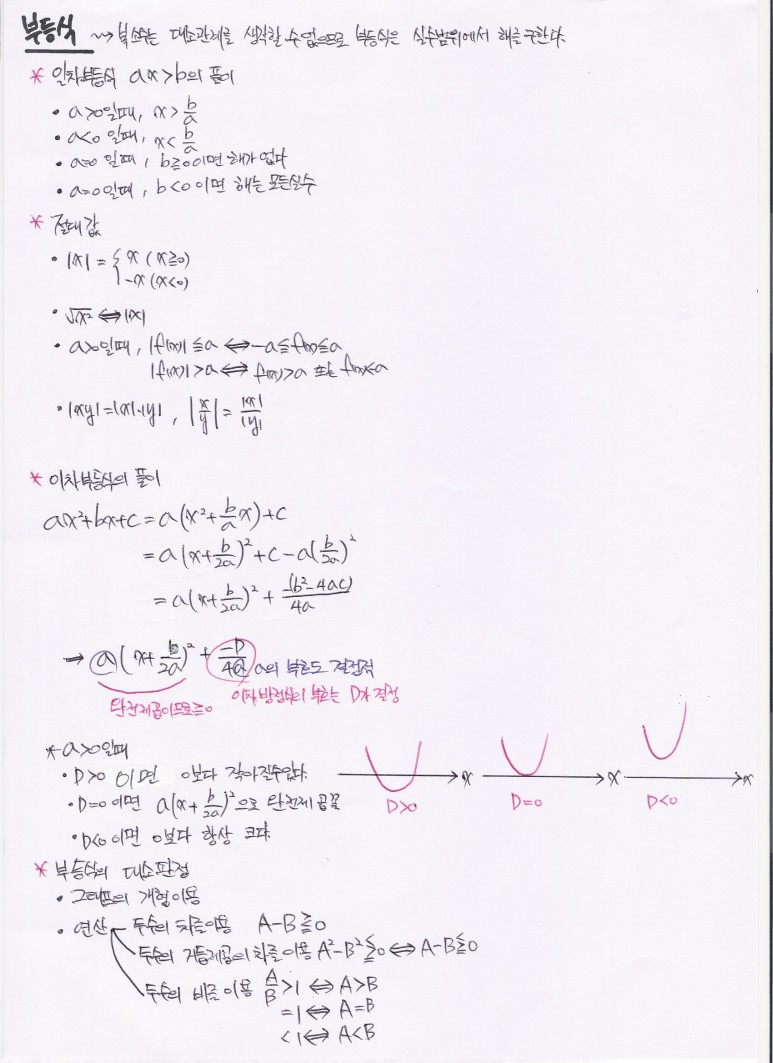 부등식 ~> 복소수는 대소관계를 생각할 수 없으므로 부등식은 실수범위에서 해를 구한다.
* 일차부등식 ax>b의 풀이
• a>0일때, x > b/a
• a<0 일때, x < b/a
• a=0 일때, b≧0이면 해가 없다
• a=0일때, b<0 이면 해는 모든실수
* 절대값
• |x| = { x (x≧0)
-x (x<0)
• √x² ⇔ |x|
• a>0일때, |f(x)| ≦a ⇔ -a≦f(x)≦a
|f(x)|>a ⇔ f(x)>a 또는 f(x)<-a
• |xy|=|x|·|y|, |x/y| = |x|/|y|
* 이차부등식의 풀이
ax²+bx+c = a(x²+b/a x)+c
= a(x+b/2a)²+c-a(b/2a)²
= a(x+b/2a)² + -(b²-4ac)/4a
→ a(x+b/2a)² + -D/4a a의 부호도 결정적
완전제곱이므로≧0 이차방정식의 부호는 D가 결정
* a>0일때
• D>0 이면 0보다 작아질수있다.
• D=0 이면 a(x+b/2a)²으로 완전제곱꼴
• D<0 이면 0보다 항상 크다.
x x x
D>0 D=0 D<0
* 부등식의 대소판정
• 그래프의 개형이용
• 연산 두수의 차를이용 A-B≧0
두수의 거듭제곱의 차를 이용 A²-B²≦0 ⇔ A-B≦0
두수의 비를 이용 A/B >1 ⇔ A>B
=1 ⇔ A=B
<1 ⇔ A<B